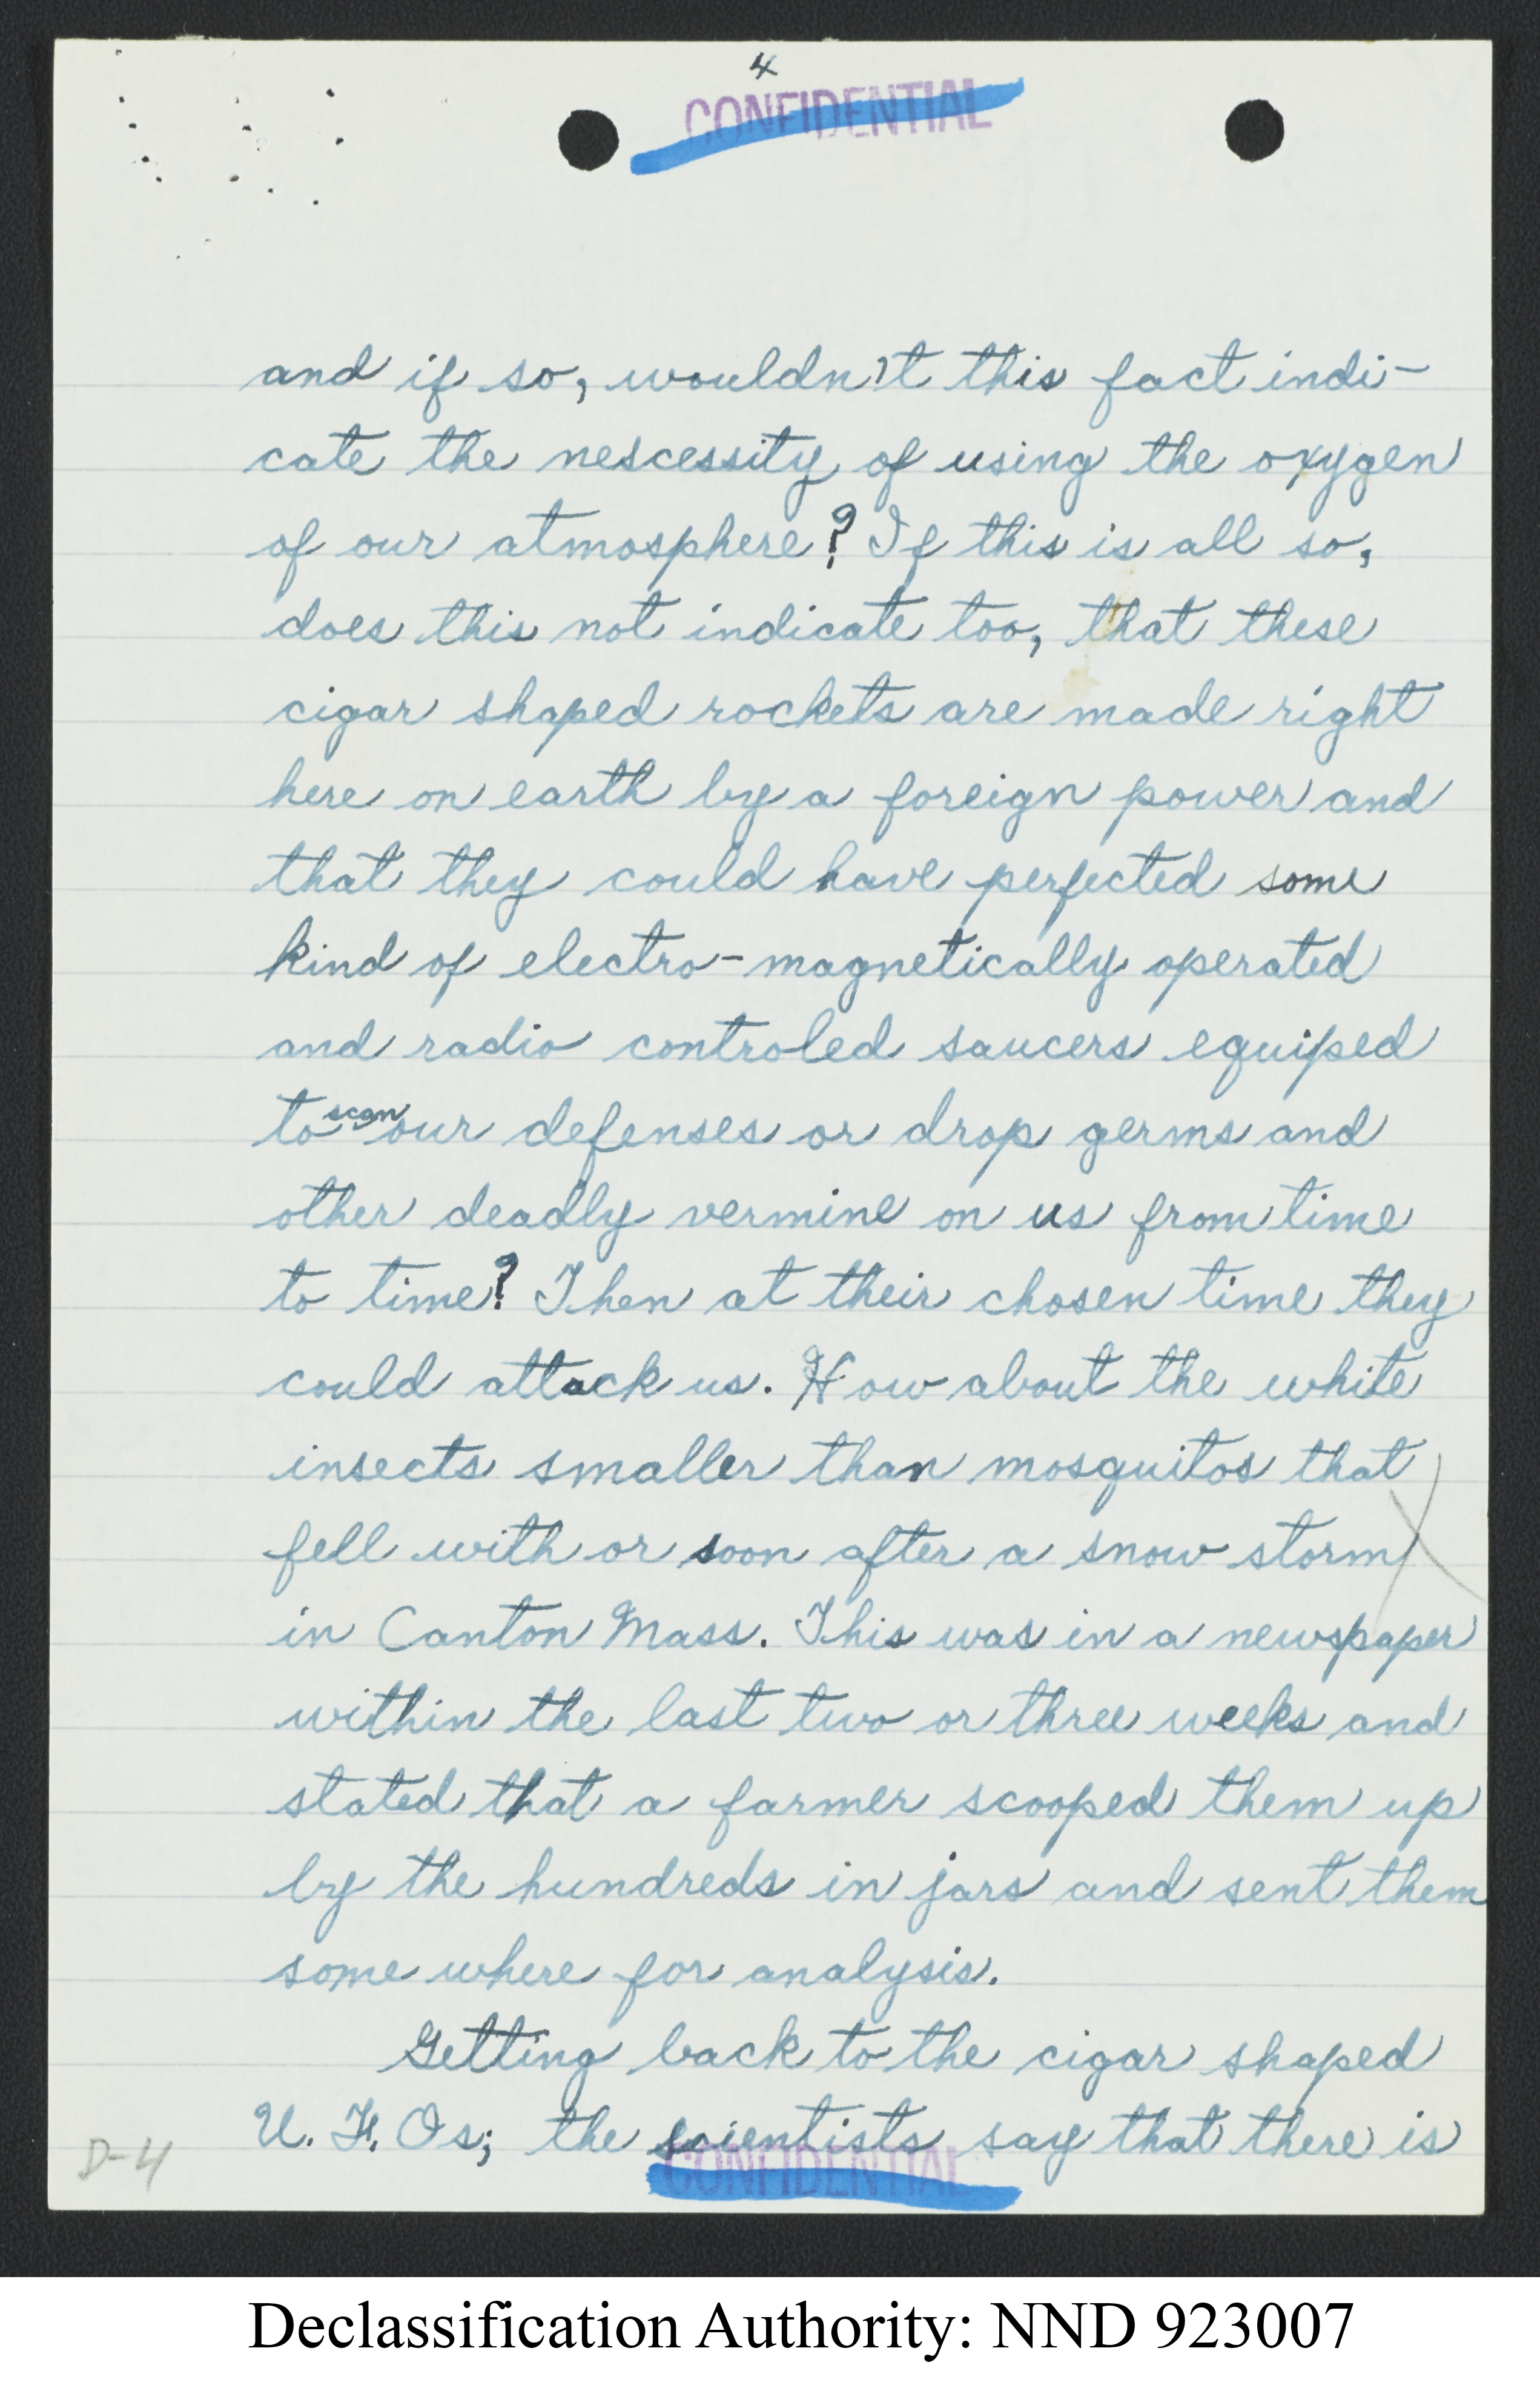 4
CONFIDENTIAL
and if so, wouldn't this fact indi-
cate the nescessity of using the oxygen
of our atmosphere? If this is all so,
does this not indicate too, that these
cigar shaped rockets are made right
here on earth by a foreign power and
that they could have perfected some
kind of electro-magnetically operated
and radio controled saucers equiped
to scan our defenses or drop germs and
other deadly vermine on us from time
to time? Then at their chosen time they
could attack us. How about the white
insects smaller than mosquitos that
fell with or soon after a snow storm
in Canton Mass. This was in a newspaper
within the last two or three weeks and
stated that a farmer scooped them up
by the hundreds in jars and sent them
some where for analysis.
Getting back to the cigar shaped
U. F. Os; the scientists say that there is
CONFIDENTIAL
D-4
Declassification Authority: NND 923007